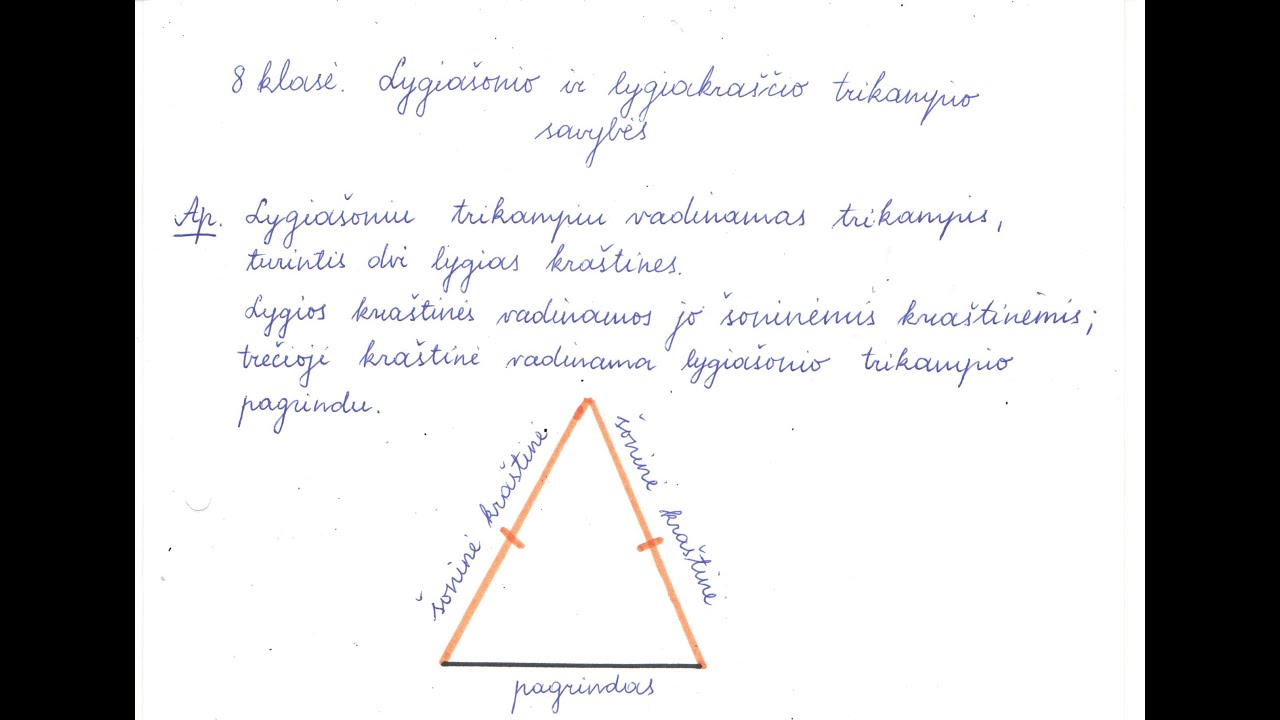 8 klasė. Lygiašonio ir lygiakraščio trikampio
savybės
Ap. Lygiašoniu trikampiu vadinamas trikampis,
turintis dvi lygias kraštines.
Lygios kraštinės vadinamos jo šoninėmis kraštinėmis;
trečioji kraštinė vadinama lygiašonio trikampio
pagrindu.
šoninė kraštinė
šoninė kraštinė
pagrindas